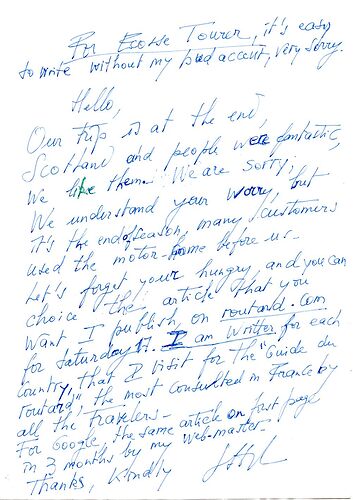 For Ecosse Tourer, it's easy
to write without my bad accent, very sorry.
Hello,
Our trip is at the end,
Scotland and people were fantastic,
we like them. We are sorry,
We understand your worry, but
It's the end of season, many customers
used the motor-home before us.
Let's forget your hungry and you can
choice the article that you
want I publish on routard.com
for Saturday 17. I am writer for each
country, that I visit for the "Guide du
routard", the most consulted in France by
all the Travelers-
For Google, the same article on first page
in 3 months by my web-master.
Thanks, Kindly